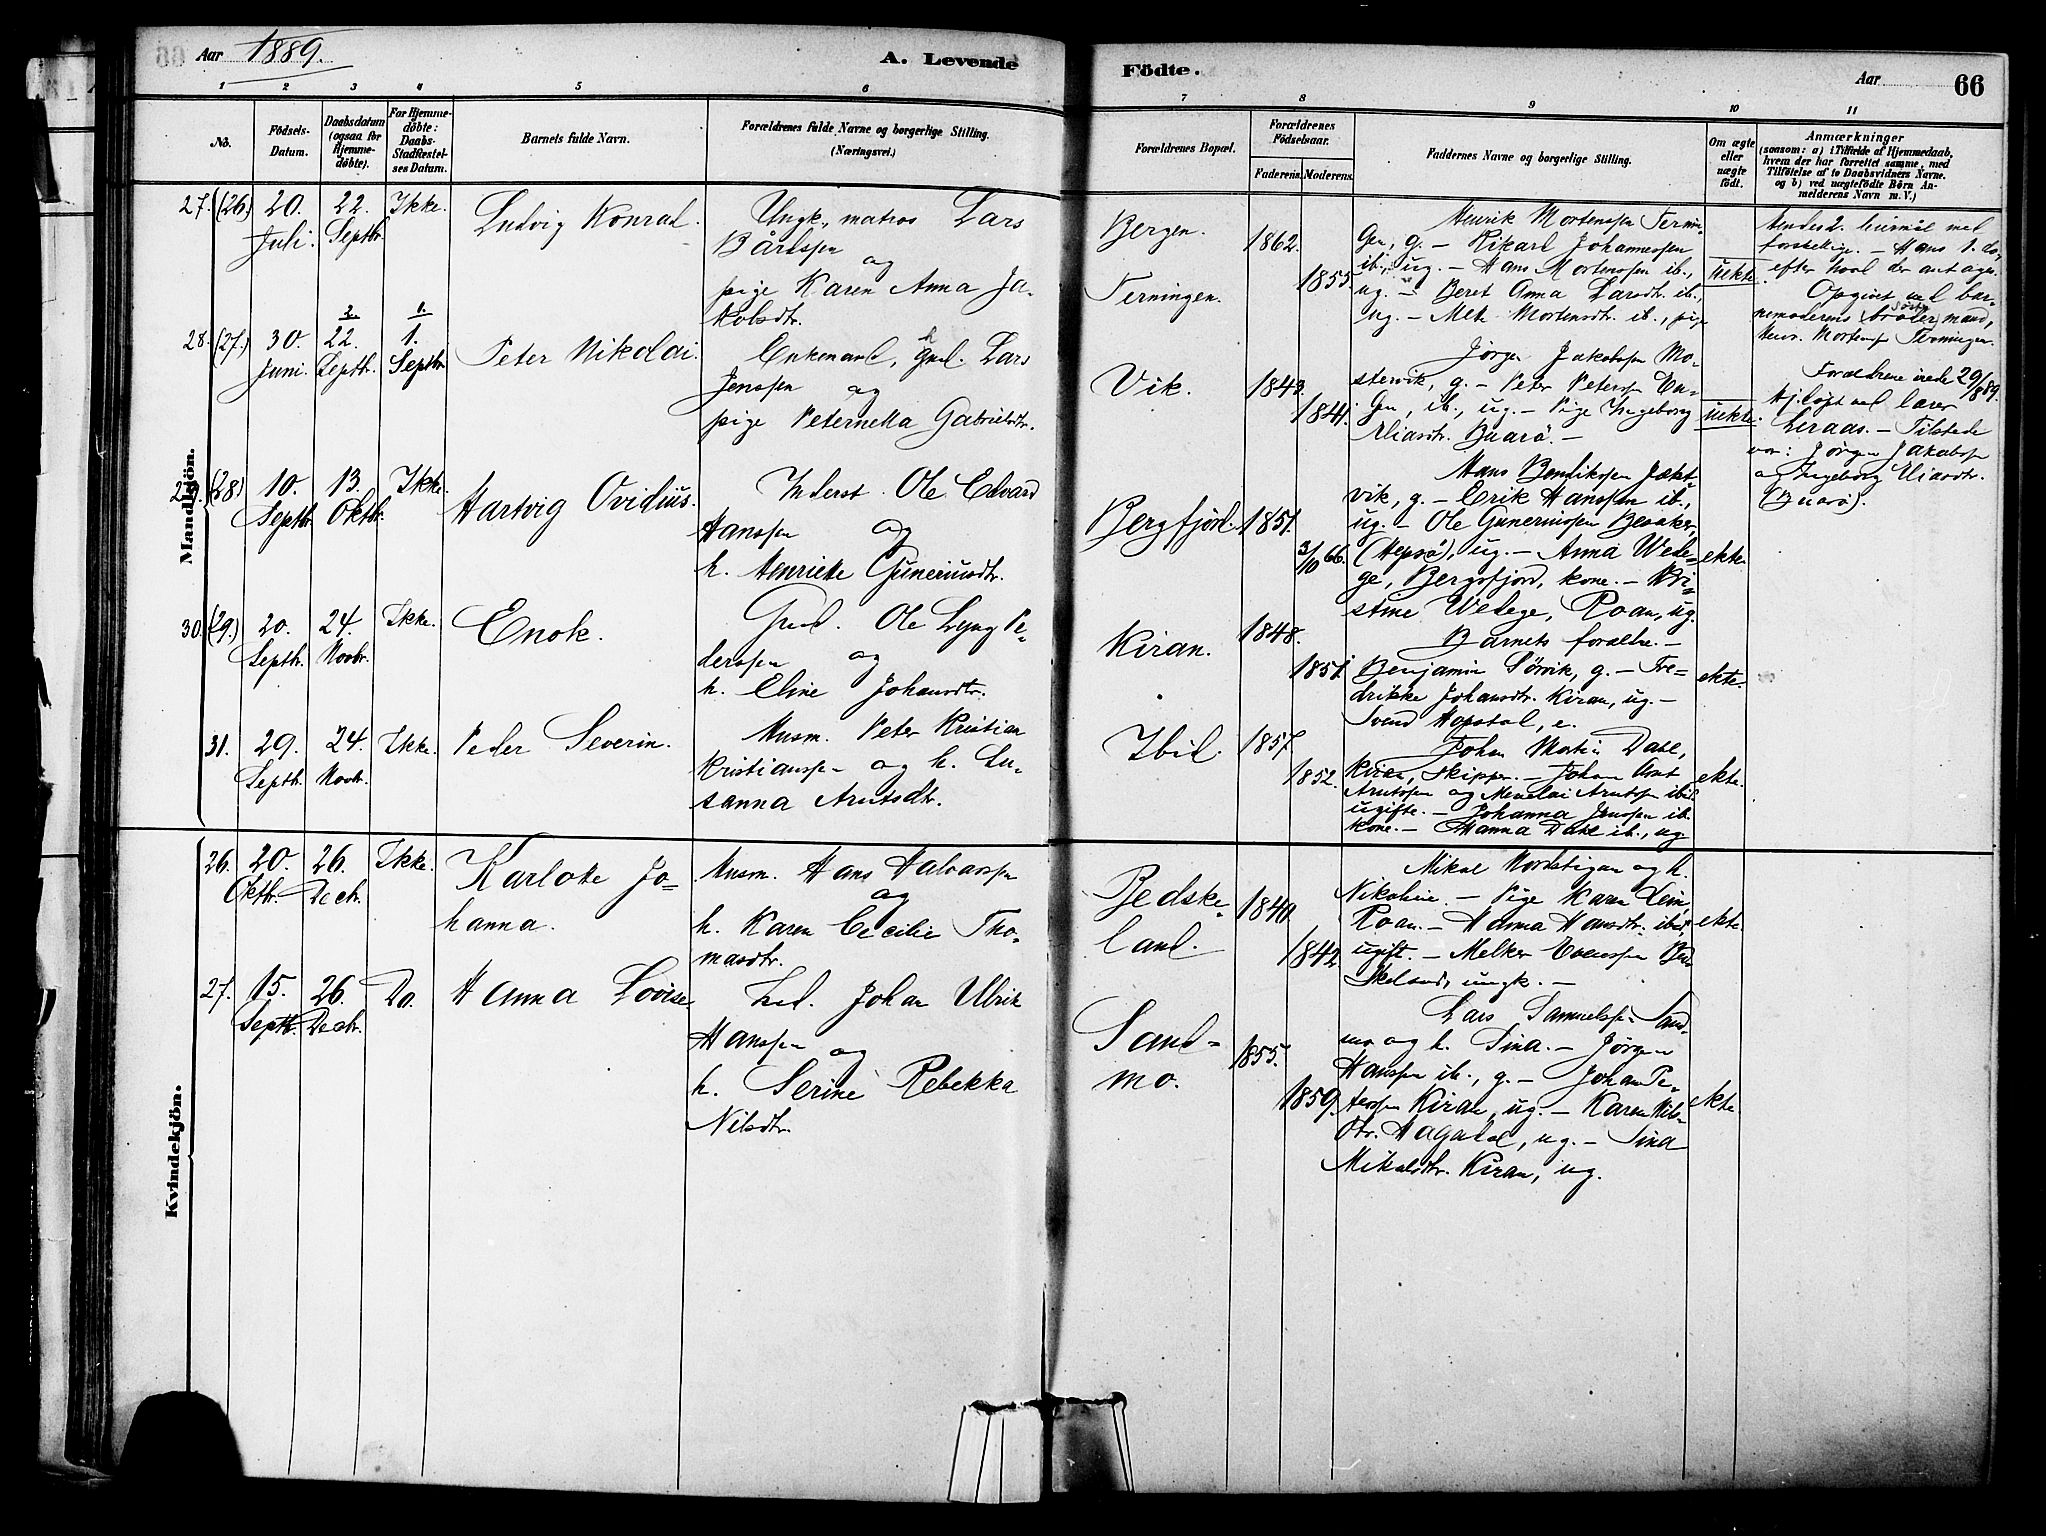 Aar 1889.
A. Levende
Födte.
Aar
66
1 2 3 4 5 6 7 8 9 10 11
No.
Födsels-
Datum.
Daabsdatum
(ogsaa for
Hjemme-
döbte).
For Hjemme-
döbte:
Daabs-
Stadfæstel-
ses Datum.
Barnets fulde Navn.
Forældrenes fulde Navne og borgerlige Stilling.
(Næringsvei.)
Forældrenes Bopæl.
Forældrenes
Födselsaar.
Faderens. Moderens.
Faddernes Navne og borgerlige Stilling.
Om ægte
eller
uægte
födt.
Anmærkninger
(saasom: a) i Tilfælde af Hjemmedaab,
hvem der har forrettet samme, med
Tilföielse af to Daabsvidners Navne.
og b) ved uægtefödte Börn An-
melderens Navn m. V.)
Mandkjön.
27. (26.) 20. Juli. 22. Septbr. Ikke.
Ludvig Konrad.
Ungk., matros Lars
Bårdssen
og
pige Karen Anna Ja-
kobsdtr.
Bergen.
Terningen.
1862.
1855.
Henrik Mortenssen Ternin-
gen, g. — Rikard Johannessen
ib., ug. — Hans Mortenssen ib.,
ug. — Beret Anna Larsdtr. ib.,
ug. — Mette Mortensdtr. ib., pige
uekte.
Hendes 2. leiermål med
forskellige. — Hans 1. do,
efter hvad der antages.
Opgivet ved bar-
nemoderens søsters mand,
Henr. Mortenss. Terningen.
28. (27.) 30. Juni. 22. Septbr. 1. Septbr.
Peter Nikolai.
Enkemand, Grd. Lars
Jenssen
og
pige Peternella Gabrielsdtr.
Vik.
1843.
1841.
Jørgen Jakobssen Mo-
stervik, g. — Peter Peterssen En-
gen, ib., ug. — Pige Ingeborg
Eliasdtr. Buarö. —
uekte.
Forældrene viede 29/8 89.
Hj.døpt ved lærer
Leraas. — Tilstede
var: Jørgen Jakobssen
og Ingeborg Eliasdtr.
(Buarö).
29. (28) 10. Septbr. 13. Oktbr. Ikke.
Hartvig Ovidius.
Inderst Ole Edvard
Hanssen
og
h. Henriette Guneriusdtr.
Bergfjörd.
1851.
3/10 66.
Hans Bendikssen Jækt-
vik, g. — Erik Hanssen ib.,
ug. — Ole Guneriussen Besaker,
(Hepsø), ug. — Anna Wede-
ge, Bergsfjord, kone. — Kri-
stine Wedege, Roan, ug.
ekte.
30. (29.) 20. Septbr. 24. Novbr. Ikke.
Enok.
Grd. Ole Lyng Pe-
derssen
og
h. Eline Johansdtr.
Kiran.
1848.
1851.
Barnets forældre. —
Benjamin Sörvik, g. — Fre-
drikke Johansdtr. Kiran, ug. —
Svend Hopstad, e.
ekte.
31. 29. Septbr. 24. Novbr. Ikke.
Peder Severin.
Husm. Peter Kristian
Kristianssen og h. Su-
sanna Arntsdtr.
Ibid.
1857.
1852.
Johan Martin Dahl,
Kiran, skipper. — Johan Arnt
Arntssen og Menelai Arntssen ibid.
ugifte. — Johanna Jenssen ib.
kone. — Hanna Dahl ib., ug.
ekte.
Kvindekjön.
26. 20. Oktbr. 26. Decbr. Ikke.
Karlote Jo-
hanna.
Husm. Hans Halvorssen
og
h. Karen Cecilie Tho-
masdtr.
Bedske-
land.
1840.
1842.
Mikal Nordstigan og h.
Nikoline. — Pige Karen Lein,
Roan. — Hanna Hansdtr. ibid,
ugift. — Melker Edvardssen Bed-
skeland, ungk. —
ekte.
27. 15. Septbr. 26. Decbr. Do.
Hanna Lovise.
Ind. Johan Ulrik
Hanssen
og
h. Serine Rebekka
Nilsdtr.
Sand-
mo.
1855.
1859.
Lars Samuelssen Sand-
mo og h. Sina. — Jørgen
Hanssen ib., g. — Johan Pe-
terssen Kiran, ug. — Karen Nils-
dtr. Hagadal, ug. — Sina
Mikalsdtr. Kiran, ug.
ekte.